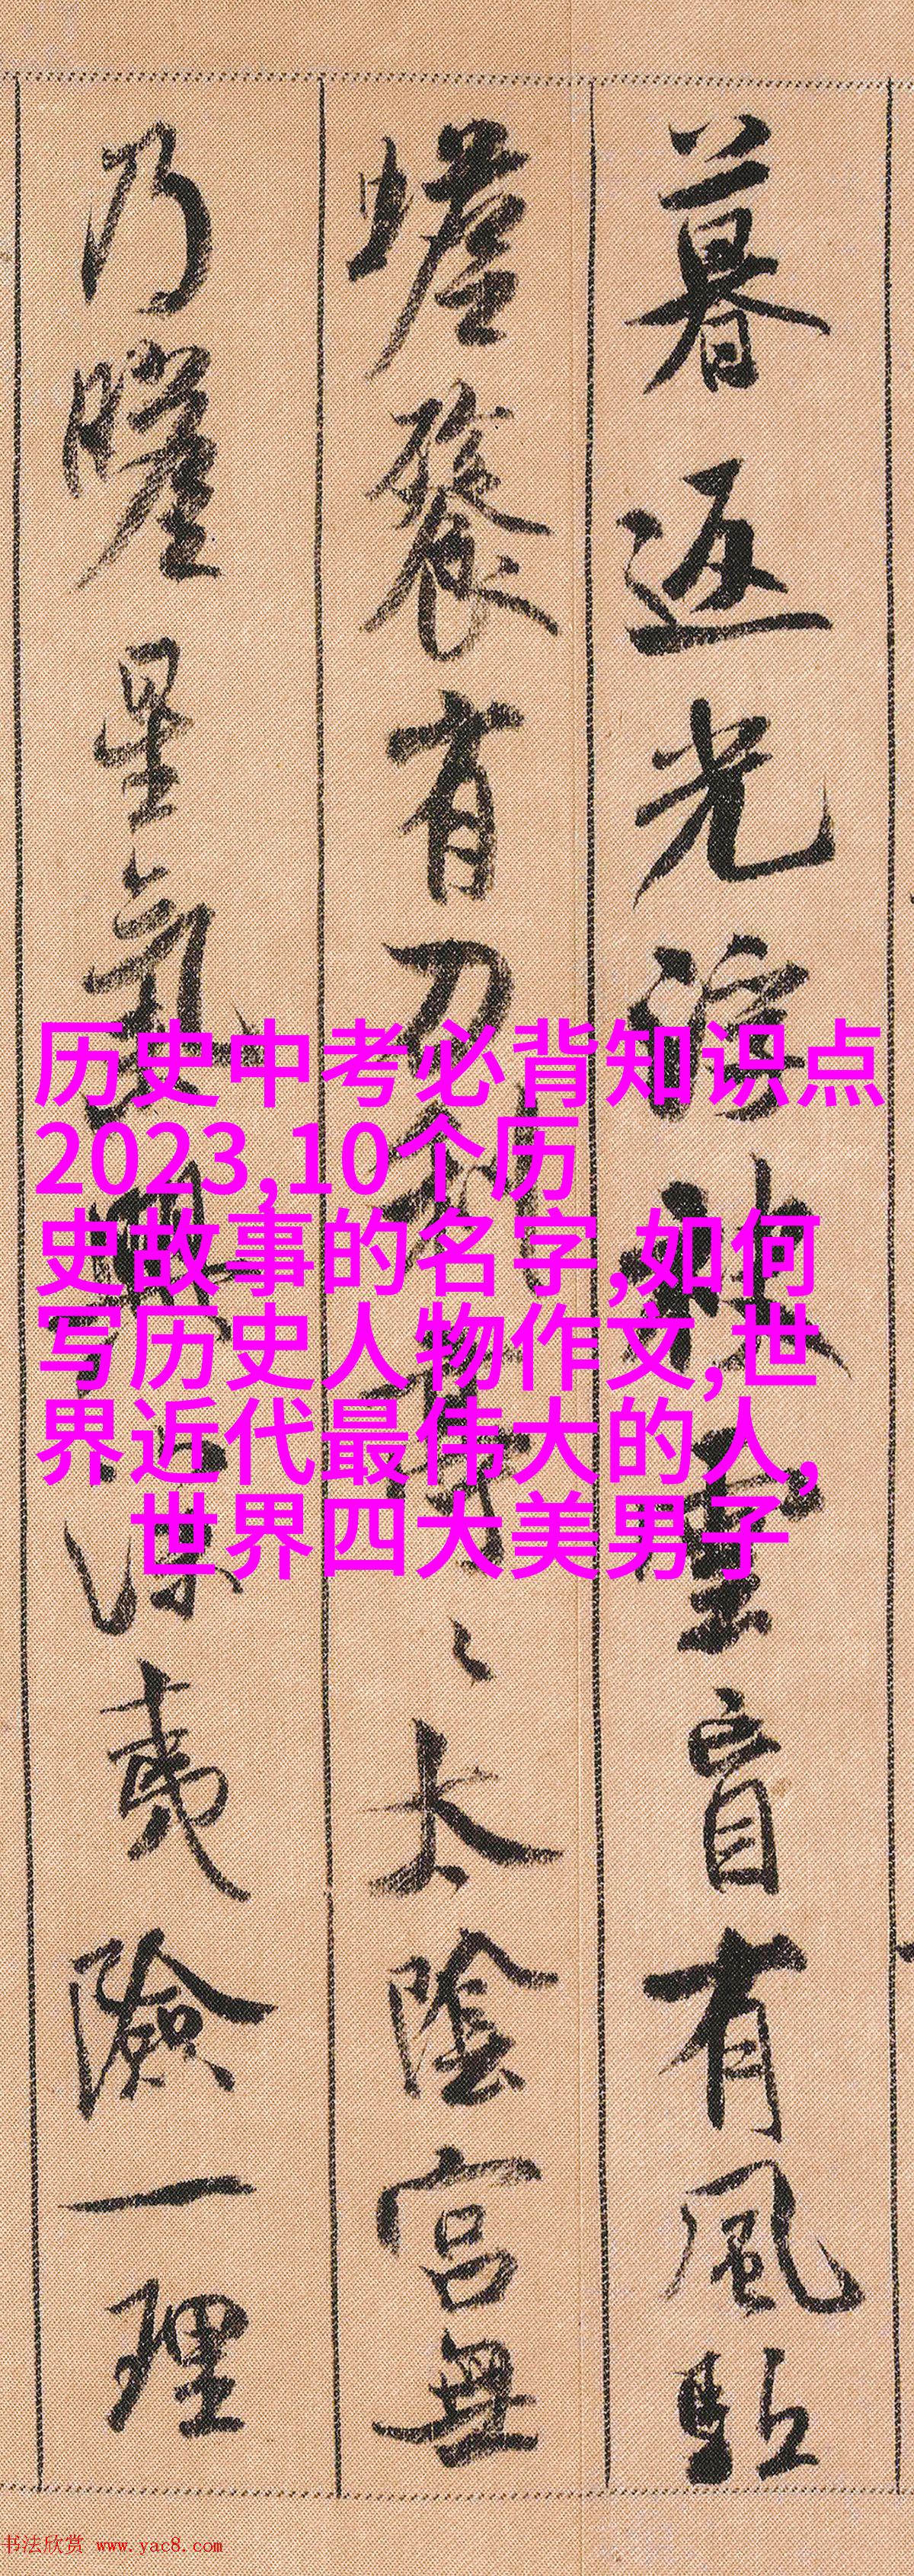 暮返光浮袂雲盲有風駈
蟾餮有刀利亭々太陰宮無
乃瞻星氣興深夷險一理
历史中考必背知识点
2023,10个历
史故事的名字,如何
写历史人物作文,世
界近代最伟大的人,
世界四大美男子
书法欣赏 www.yac8.com